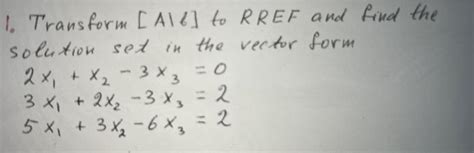 1. Transform [A|b] to RREF and find the
solution set in the vector form
2x₁ + x₂ - 3x₃ = 0
3x₁ + 2x₂ - 3x₃ = 2
5x₁ + 3x₂ - 6x₃ = 2